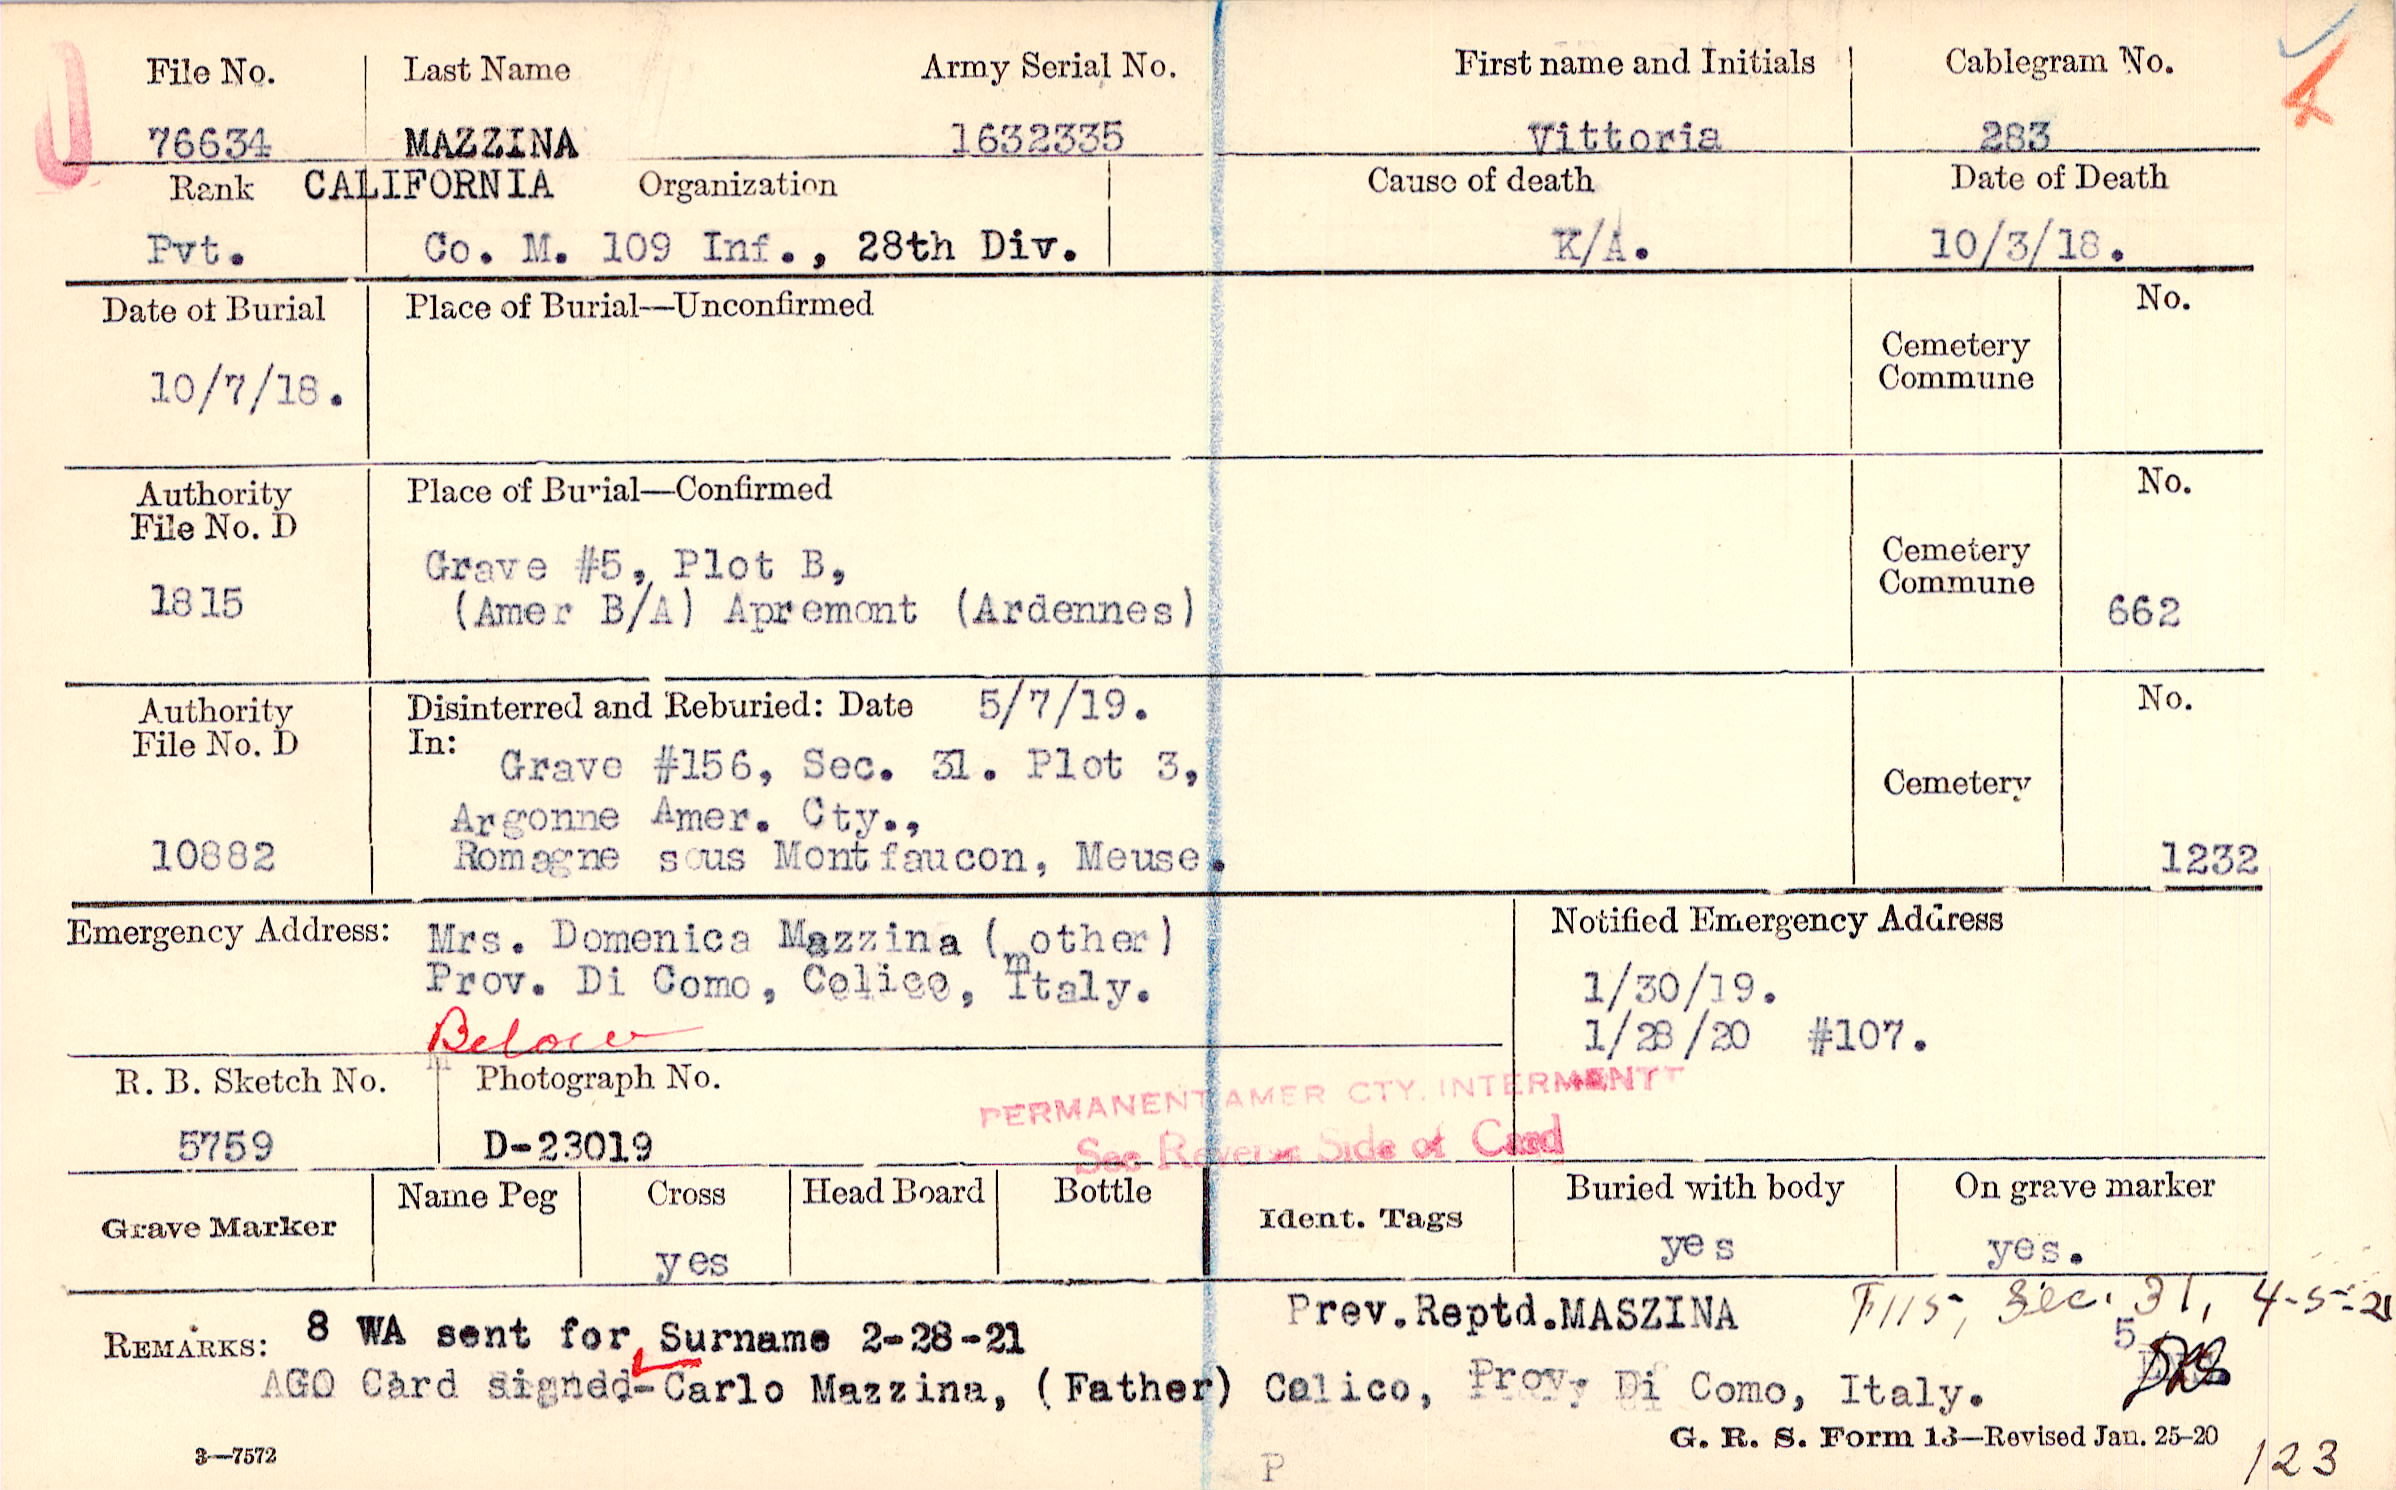 File No. Last Name Army Serial No. First name and Initials Cablegram No.
76634 MAZZINA 1632335 Vittoria 283
Rank CALIFORNIA Organization Cause of death Date of Death
Pvt. Co. M. 109 Inf., 28th Div. K/A. 10/3/18.
Date of Burial Place of Burial—Unconfirmed No.
Cemetery
Commune
10/7/18.
Authority Place of Burial—Confirmed No.
File No. D
Cemetery
Commune
Grave #5, Plot B,
1815 (Amer B/A) Apremont (Ardennes) 662
Authority Disinterred and Reburied: Date 5/7/19. No.
File No. D In:
Grave #156, Sec. 31. Plot 3, Cemetery
Argonne Amer. Cty.,
10882 Romagne sous Montfaucon, Meuse. 1232
Emergency Address: Mrs. Domenica Mazzina (mother) Notified Emergency Address
Prov. Di Como, Colico, Italy. 1/30/19.
Below 1/28/20 #107.
R. B. Sketch No. Photograph No.
PERMANENT AMER CTY. INTERMENT
5759 D-23019 See Reverse Side of Card
Grave Marker Name Peg Cross Head Board Bottle Ident. Tags Buried with body On grave marker
yes yes yes.
REMARKS: 8 WA sent for Surname 2-28-21 Prev.Reptd.MASZINA F115, Sec. 31, 4-5-21
5
AGO Card signed-Carlo Mazzina, (Father) Colico, Prov. Di Como, Italy.
G. R. S. Form 13—Revised Jan. 25-20
3—7572 P 123